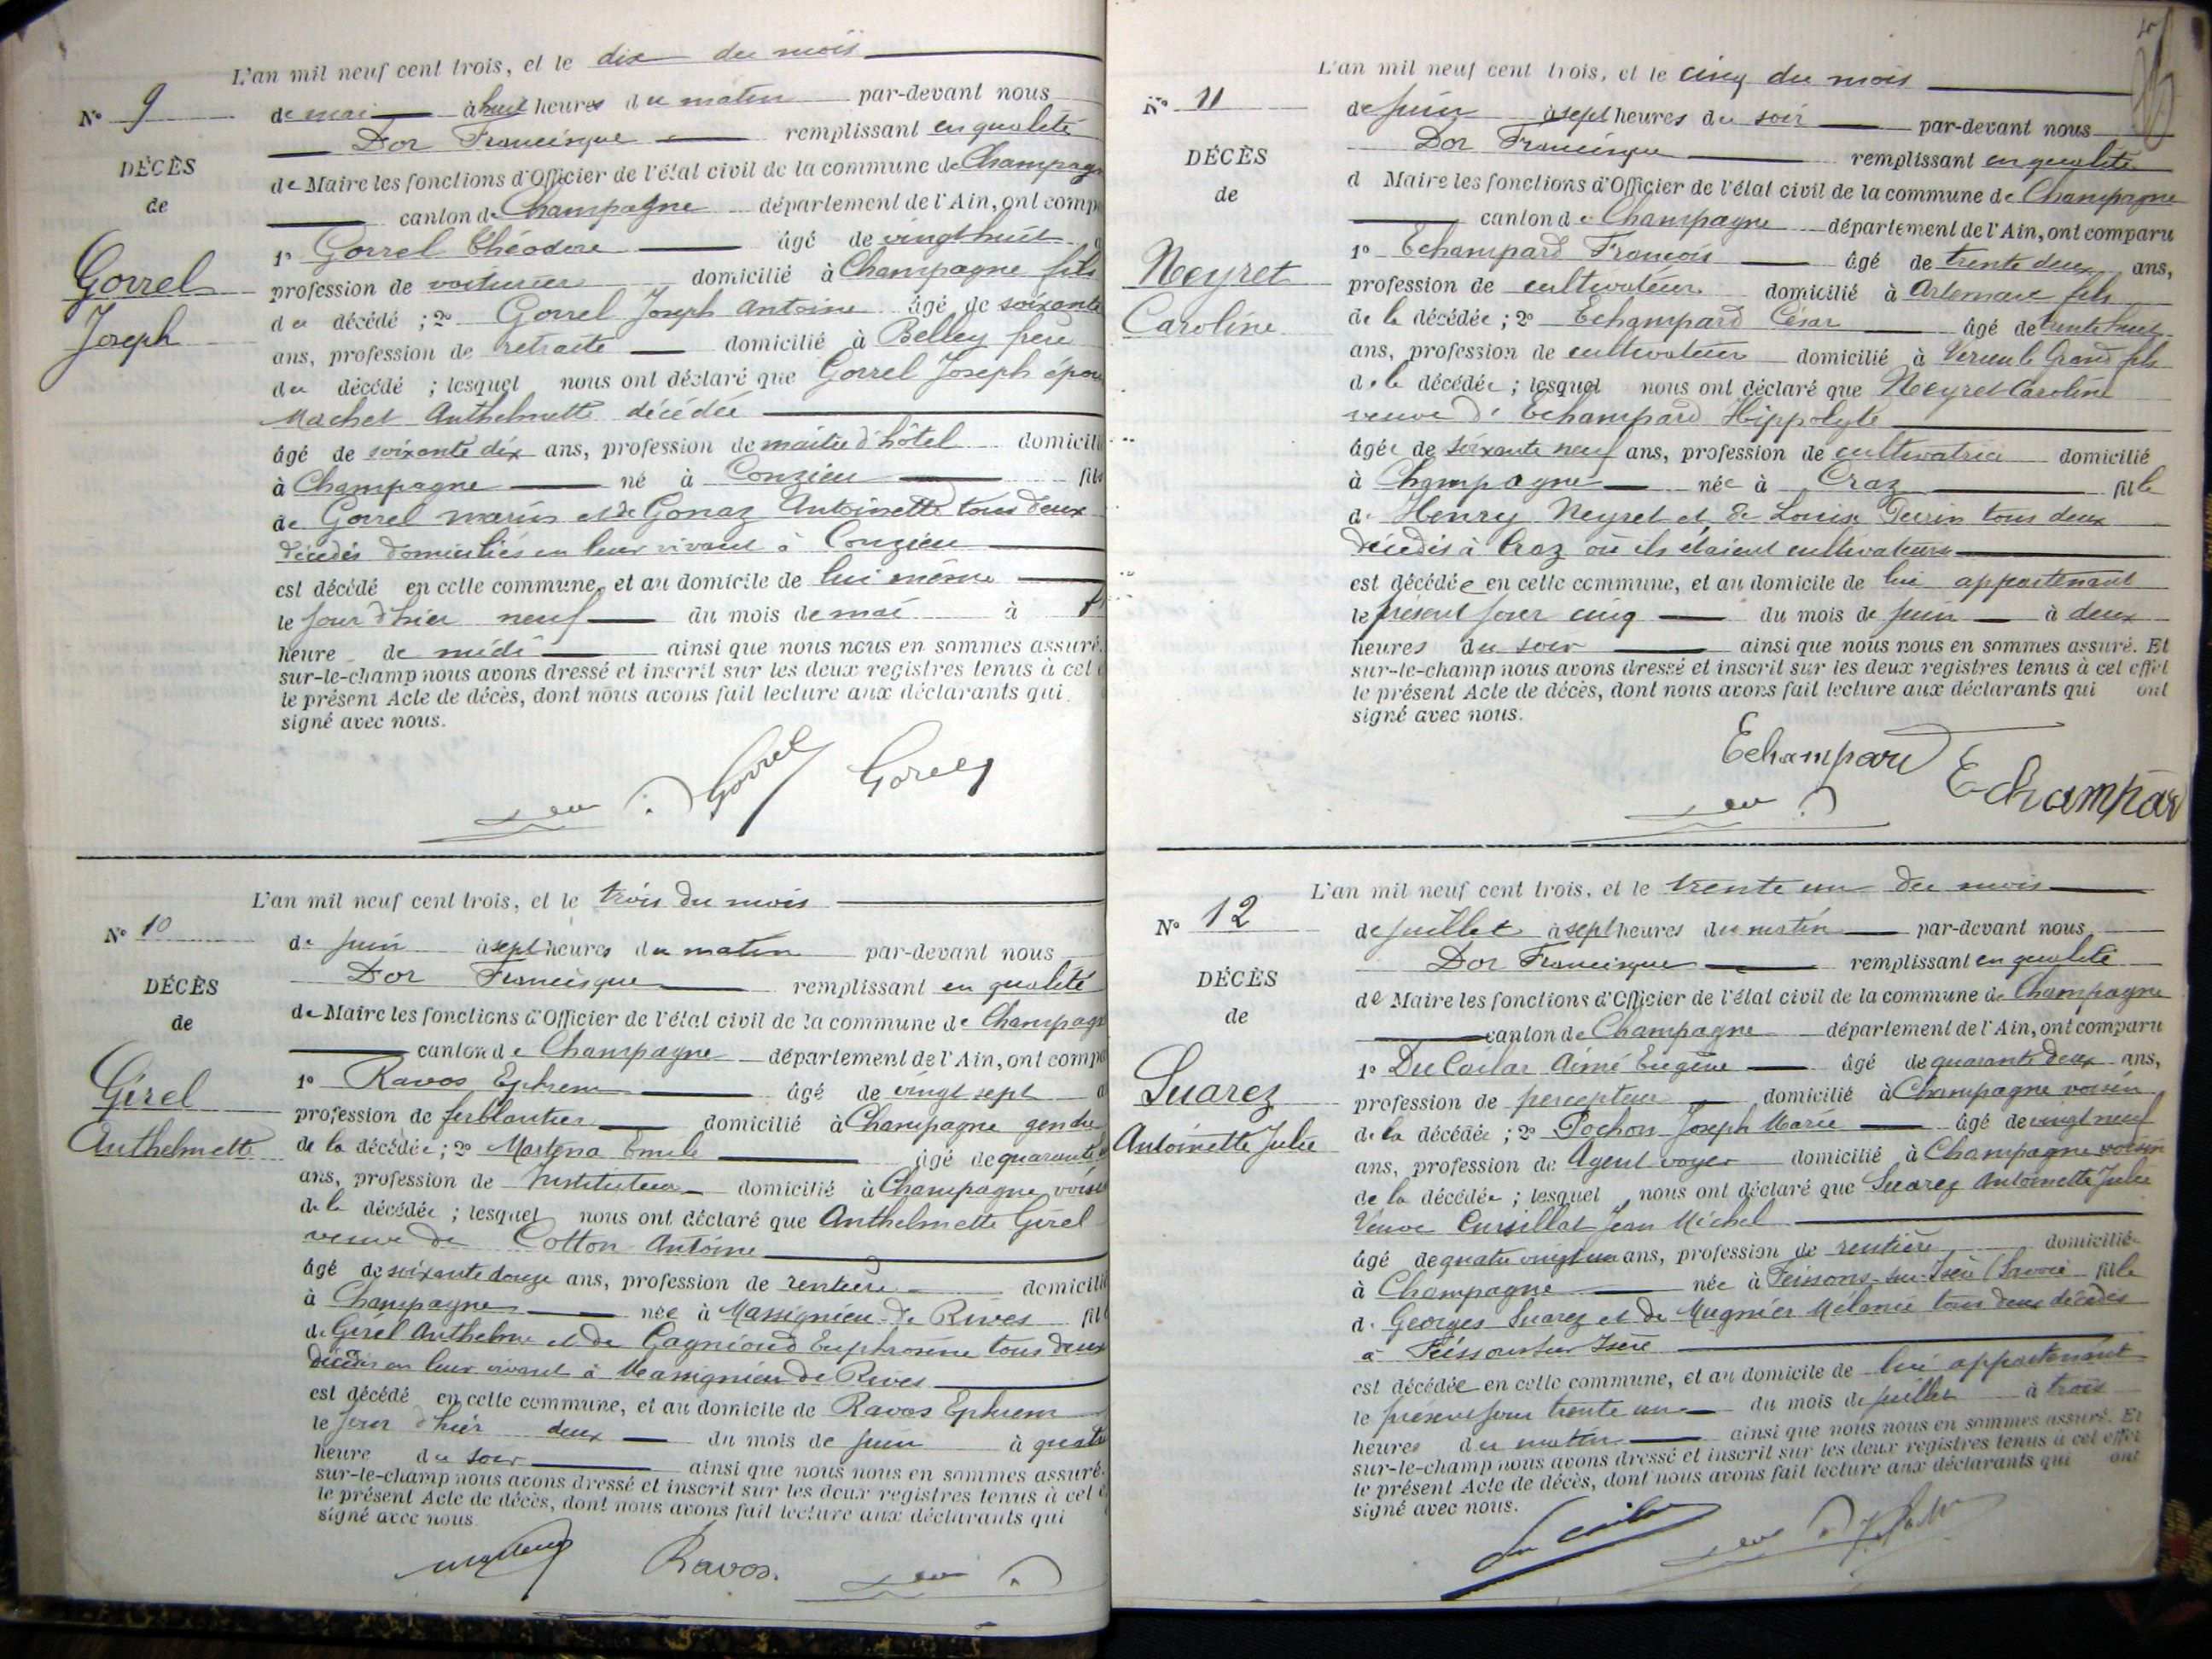 L'an mil neuf cent trois, et le dix du mois
N° 9
de mai à huit heures du matin par-devant nous
Dor Francisque remplissant en qualité
DÉCÈS
de Maire les fonctions d'Officier de l'état civil de la commune de Champagn
de
canton de Champagne département de l'Ain, ont comp
Gorrel
Joseph
1° Gorrel Théodore âgé de vingt huit
profession de voiturier domicilié à Champagne fils
du décédé ; 2° Gorrel Joseph Antoine âgé de soixante
ans, profession de retraité domicilié à Belley frère
du décédé ; lesquel nous ont déclaré que Gorrel Joseph époux
Machet Anthelmette décédée
âgé de soixante dix ans, profession de maitre d'hôtel domicili
à Champagne né à Conzieu fils
de Gorrel marin et de Gonaz Antoinette tous deux
décédés domiciliés en leur vivant à Conzieu
est décédé en cette commune, et au domicile de lui même
le jour d'hier neuf du mois de mai à
heure de midi ainsi que nous nous en sommes assuré.
sur-le-champ nous avons dressé et inscrit sur les deux registres tenus à cet e
le présent Acte de décès, dont nous avons fait lecture aux déclarants qui
signé avec nous.
Gorrel Gorrel
L'an mil neuf cent trois, et le trois du mois
N° 10
de juin à sept heures du matin par-devant nous
Dor Francisque remplissant en qualité
DÉCÈS
de Maire les fonctions d'Officier de l'état civil de la commune de Champagn
de
canton de Champagne département de l'Ain, ont compa
Girel
Anthelmette
1° Ravos Ephrem âgé de vingt sept a
profession de ferblantier domicilié à Champagne gendre
de la décédée ; 2° Martena Emile âgé de quarante
ans, profession de Instituteur domicilié à Champagne voisin
de la décédée ; lesquel nous ont déclaré que Anthelmette Girel
veuve de Cotton Antoine
âgé de soixante douze ans, profession de rentière domicilié
à Champagne née à Massignieu de Rives fill
de Girel Anthelme et de Cagniond Euphrosine tous deux
décédés en leur vivant à Massignieu de Rives
est décédé en cette commune, et au domicile de Ravos Ephrem
le jour d'hier deux du mois de juin à quatre
heure du soir ainsi que nous nous en sommes assuré.
sur-le-champ nous avons dressé et inscrit sur les deux registres tenus à cet e
le présent Acte de décès, dont nous avons fait lecture aux déclarants qui
signé avec nous.
Ravos.
L'an mil neuf cent trois, et le cinq du mois
N° 11
de juin à sept heures du soir par-devant nous
Dor Francisque remplissant en qualité
DÉCÈS
d Maire les fonctions d'Officier de l'état civil de la commune de Champagne
de
canton de Champagne département de l'Ain, ont comparu
Neyret
Caroline
1° Echampard François âgé de trente deux ans,
profession de cultivateur domicilié à Artemare fils
de la décédée ; 2° Echampard César âgé de trente huit
ans, profession de cultivateur domicilié à Virieu le Grand fils
de la décédée ; lesquel nous ont déclaré que Neyret Caroline
veuve d' Echampard Hippolyte
âgée de soixante neuf ans, profession de cultivatrice domicilié
à Champagne née à Craz fille
de Henry Neyret et de Louise Perrin tous deux
décédés à Craz où ils étaient cultivateurs
est décédée en cette commune, et au domicile de lui appartenant
le présent jour cinq du mois de juin à deux
heures du soir ainsi que nous nous en sommes assuré. Et
sur-le-champ nous avons dressé et inscrit sur les deux registres tenus à cet effet
le présent Acte de décès, dont nous avons fait lecture aux déclarants qui ont
signé avec nous.
Echampard Echampar
L'an mil neuf cent trois, et le trente un du mois
N° 12
de juillet à sept heures du matin par-devant nous
Dor Francisque remplissant en qualité
DÉCÈS
de Maire les fonctions d'Officier de l'état civil de la commune de Champagne
de
canton de Champagne département de l'Ain, ont comparu
Suarez
Antoinette Julie
1° Du Cailar Aimé Eugène âgé de quarante deux ans,
profession de percepteur domicilié à Champagne voisin
de la décédée ; 2° Pochon Joseph Marie âgé de vingt neuf
ans, profession de Agent voyer domicilié à Champagne voisin
de la décédée ; lesquel nous ont déclaré que Suarez Antoinette Julie
Veuve Cursillat Jean Michel
âgé de quatre vingt un ans, profession de rentière domiciliée
à Champagne née à Feissons-sur-Isère (Savoie fille
de Georges Suarez et de Mugnier Mélanie tous deux décédés
à Feissons sur Isère
est décédée en cette commune, et au domicile de lui appartenant
le présent jour trente un du mois de juillet à trois
heures du matin ainsi que nous nous en sommes assuré. Et
sur-le-champ nous avons dressé et inscrit sur les deux registres tenus à cet effet
le présent Acte de décès, dont nous avons fait lecture aux déclarants qui ont
signé avec nous.